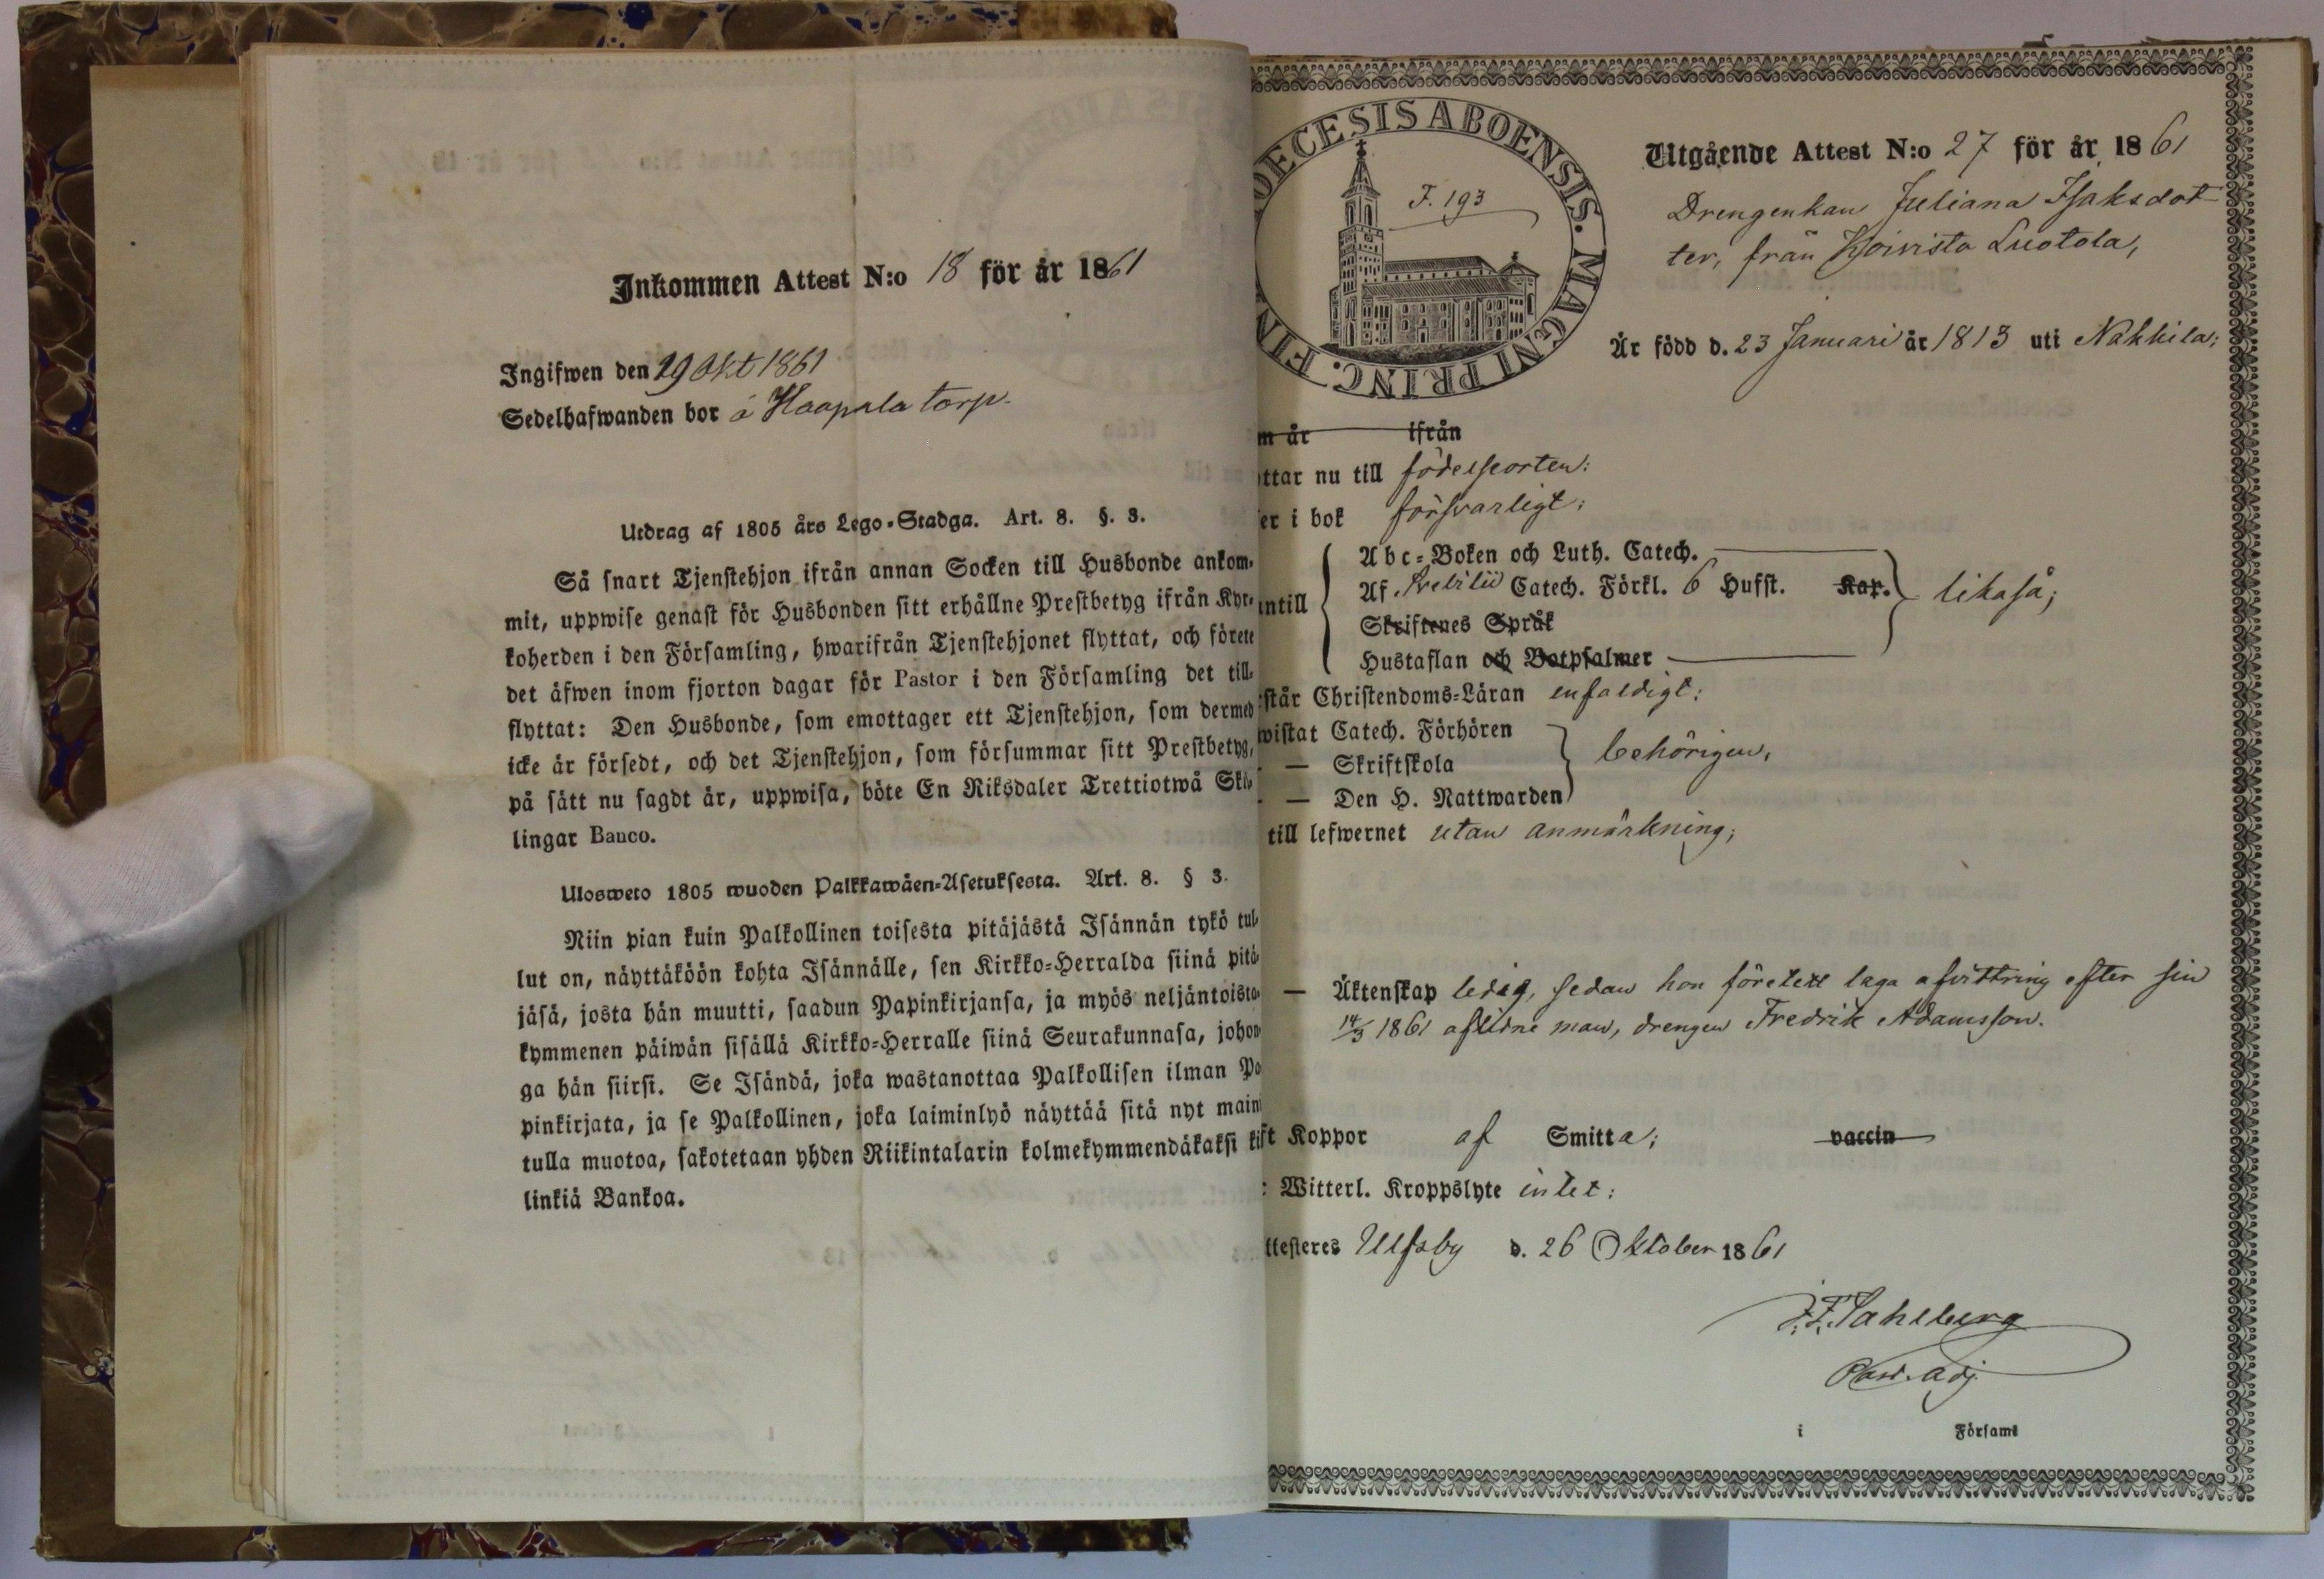 Inkommen Attest N:o 18 för år 1861
Ingifwen den 29 Okt 1861
Sedelhafwanden bor å Haapala torp.
Utdrag af 1805 års Lego-Stadga. Art. 8. §. 3.
Så snart Tjenstehjon ifrån annan Socken till Husbonde ankom-
mit, uppwise genast för Husbonden sitt erhållne Prestbetyg ifrån Kyr-
koherden i den Församling, hwarifrån Tjenstehjonet flyttat, och förete
det äfwen inom fjorton dagar för Pastor i den Församling det till-
flyttat: Den Husbonde, som emottager ett Tjenstehjon, som dermed
icke är försedt, och det Tjenstehjon, som försummar sitt Prestbetyg,
på sätt nu sagdt är, uppwisa, böte En Riksdaler Trettiotwå Skil-
lingar Banco.
Ulosweto 1805 wuoden Palkkawäen-Asetuksesta. Art. 8. § 3.
Niin pian kuin Palkollinen toisesta pitäjästä Isännän tykö tul-
lut on, näyttäköön kohta Isännälle, sen Kirkko-Herralda siinä pitä-
jäsä, josta hän muutti, saadun Papinkirjansa, ja myös neljäntoista-
kymmenen päiwän sisällä Kirkko-Herralle siinä Seurakunnasa, johon-
ga hän siirsi. Se Isändä, joka wastanottaa Palkollisen ilman Pa
pinkirjata, ja se Palkollinen, joka laiminlyö näyttää sitä nyt main
tulla muotoa, sakotetaan yhden Riikintalarin kolmekymmendäkaksi ki
linkiä Bankoa.
DECESIS ABOENSIS. MAGNI PRINC. FIN
F. 193
Utgående Attest N:o 27 för år 1861
Drengenkan Juliana Isaksdot-
ter, från Koivisto Luotola,
Är född d. 23 Januari år 1813 uti Nakkila;
m år ifrån
ttar nu till födelseorten:
er i bok försvarligt:
intill
Abc-Boken och Luth. Catech.
Af Svebilii Catech. Förkl. 6 Hufst. Kap.
likaså;
Skriftenes Språk
Hustaflan och Botpsalmer
rstår Christendoms-Läran enfaldigt:
wistat Catech. Förhören
— Skriftskola
behörigen,
— Den H. Nattwarden
till lefwernet utan anmärkning;
— Äktenskap ledig, sedan hon företett laga afvittring efter sin
14/3 1861 aflidne man, drengen Fredrik Adamsson.
ft Koppor af Smitta; vaccin
: Witterl. Kroppslyte intet:
ttesteres Ulfsby d. 26 Oktober 1861
F. Sahlberg
Past. adj.
i Församl